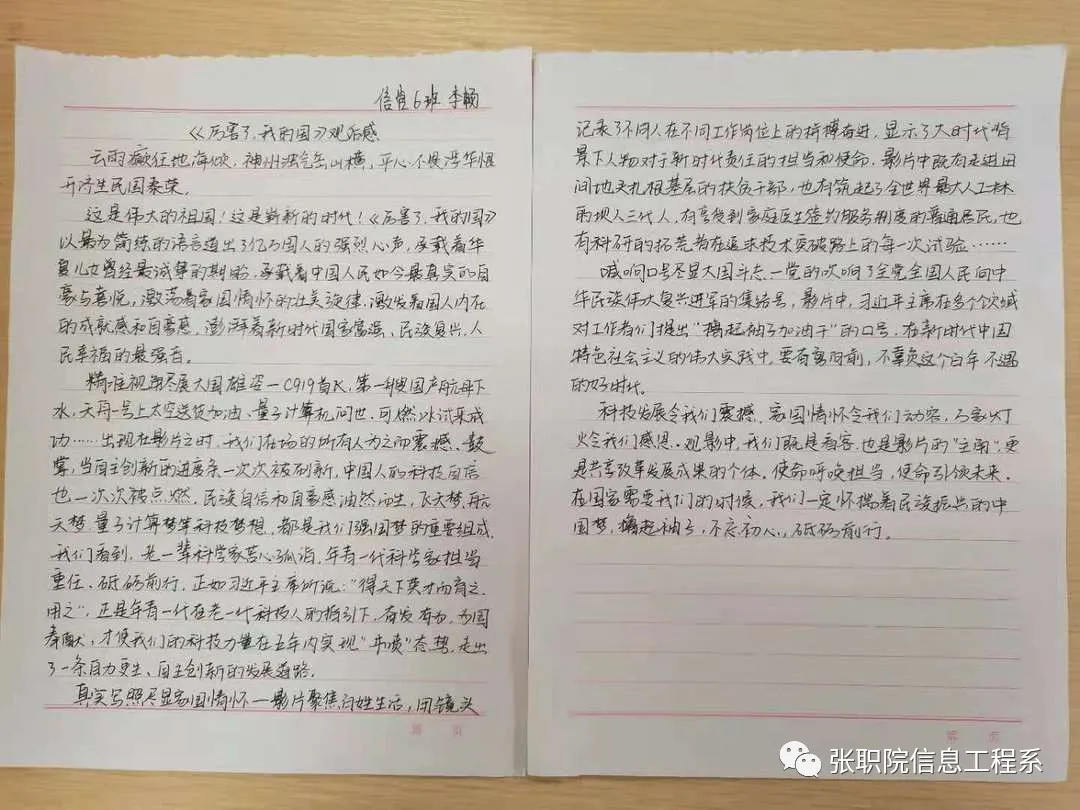 信管6班 李畅
《厉害了,我的国》观后感
云雨癫狂地海倾,神州浩气岳山横,平心不惧浮华慑
开济生民国泰荣。
这是伟大的祖国!这是崭新的时代!《厉害了,我的国》
以最为简练的语言道出了亿万国人的强烈心声,承载着华
夏儿女曾经最诚挚的期盼,承载着中国人民如今最真实的自
豪与喜悦,激荡着家国情怀的壮美旋律,激发着国人内在
的成就感和自豪感,澎湃着新时代国家富强、民族复兴、人
民幸福的最强音。
精准视角尽展大国雄姿—C919首飞,第一艘国产航母下
水,天舟一号上太空送货加油、量子计算机问世、可燃冰试采成
功……出现在影片之时,我们在场的所有人为之而震撼、鼓
掌,当自主创新的进度条一次次被刷新,中国人的科技自信
也一次次被点燃,民族自信和自豪感油然而生,飞天梦,航
天梦,量子计算梦等科技梦想,都是我们强国梦的重要组成,
我们看到,老一辈科学家苦心孤诣,年青一代科学家担当
重任、砥砺前行,正如习近平主席所说:"得天下英才而育之.
用之",正是年青一代在老一代科技人的指引下,奋发有为,为国
奉献,才使我们的科技力量在五年内实现"井喷"态势,走出
了一条自力更生、自主创新的发展道路.
真实写照尽显家国情怀—影片聚焦百姓生活,用镜头
第 页
记录了不同人在不同工作岗位上的拼搏奋进,显示了大时代背
景下人物对于新时代责任的担当和使命,影片中既有走进田
间地头扎根基层的扶贫干部,也有筑起了全世界最大人工林
的坝人三代人,有享受到家庭医生签约服务制度的普通居民,也
有科研的拓荒者在追求技术突破路上的每一次试验……
喊响口号尽显大国斗志—党的吹响了全党全国人民向中
华民族伟大复兴进军的集结号,影片中,习近平主席在多个次
对工作者们提出"撸起袖子加油干"的口号,在新时代中国
特色社会主义的伟大实践中,要奋勇向前,不辜负这个百年不遇
的好时代.
科技发展令我们震撼,家国情怀令我们动容,万家灯
火令我们感恩.观影中,我们既是看客,也是影片的"主角",更
是共享改革发展成果的个体,使命呼唤担当,使命引领未来.
在国家需要我们的时候,我们一定怀揣着民族振兴的中
国梦,撸起袖子,不忘初心,砥砺前行.
第 页
张职院信息工程系